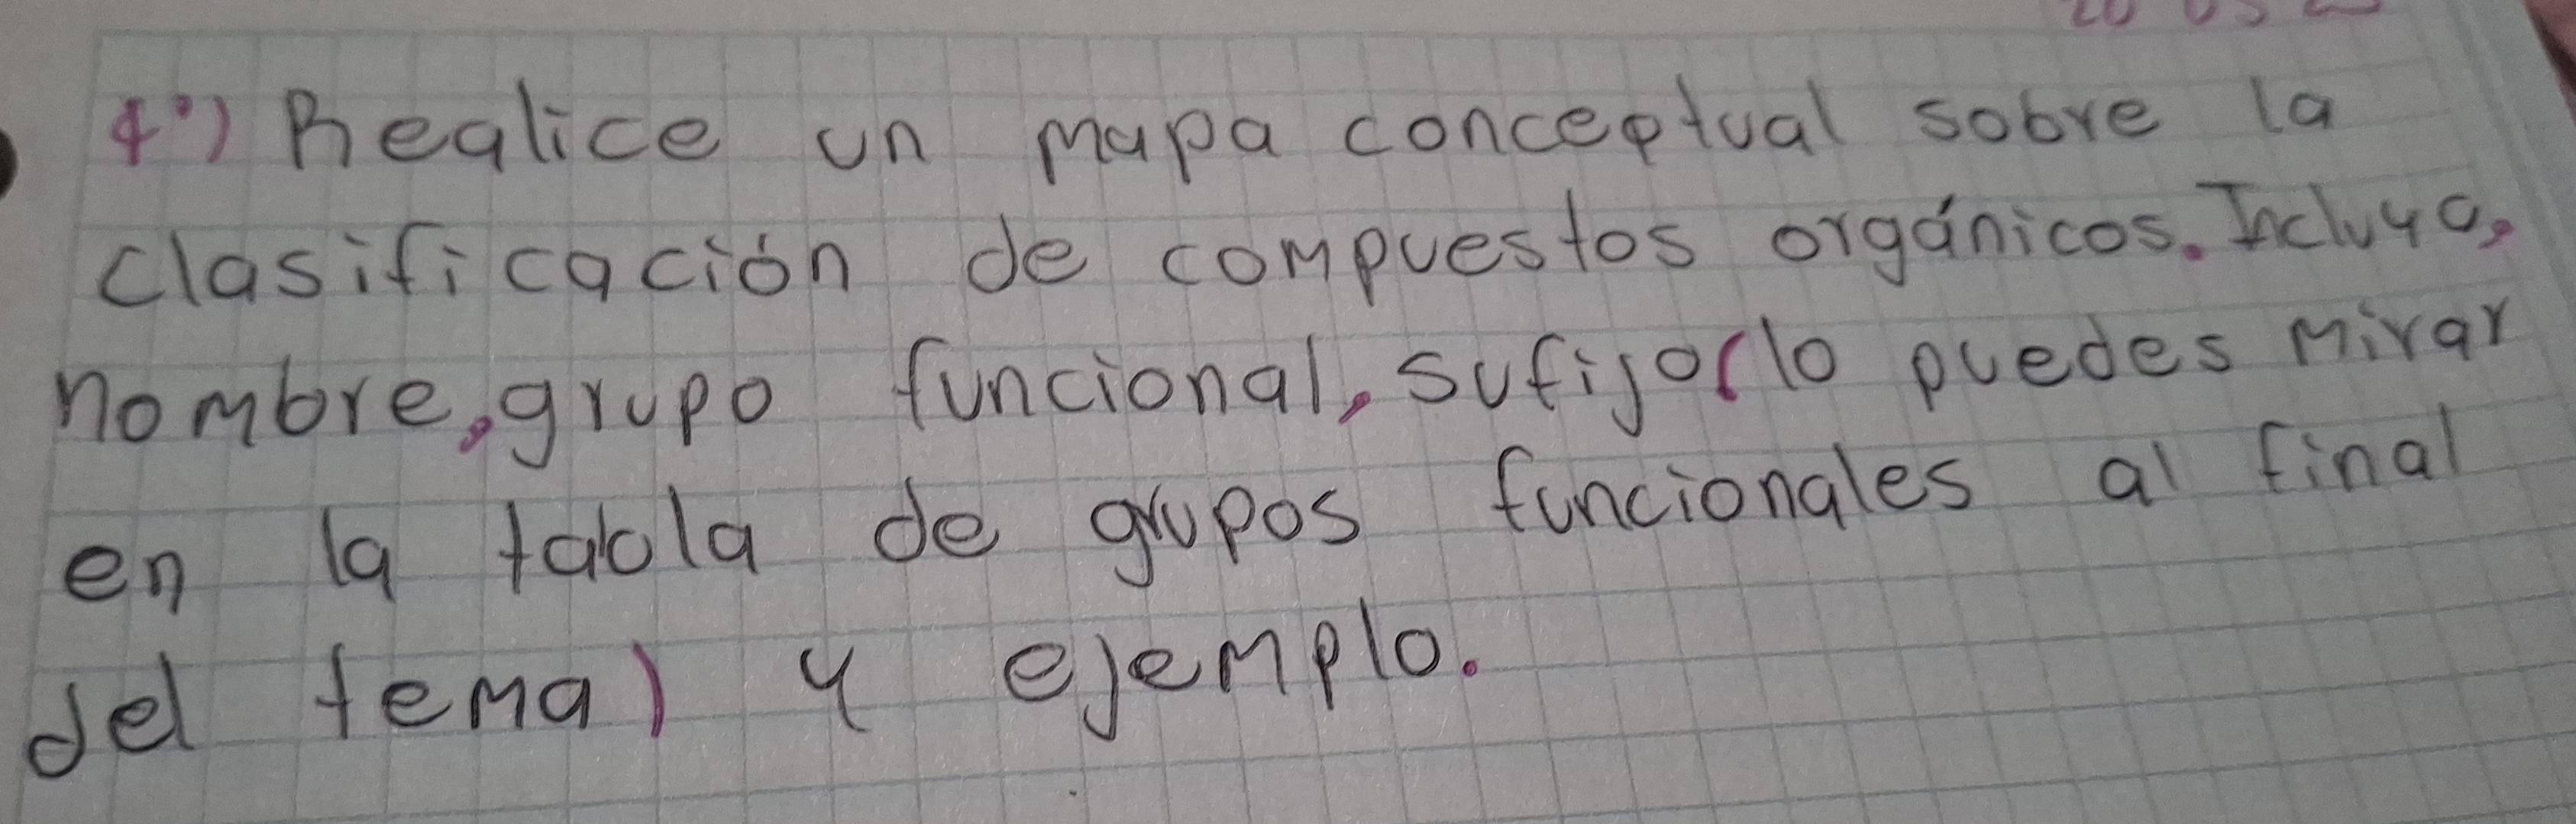 4°) Realice un mapa conceptual sobre la
clasificación de compuestos orgánicos. Incluya,
nombre, grupo funcional, sufijo (lo puedes mirar
en la tabla de grupos funcionales al final
del tema) y ejemplo.